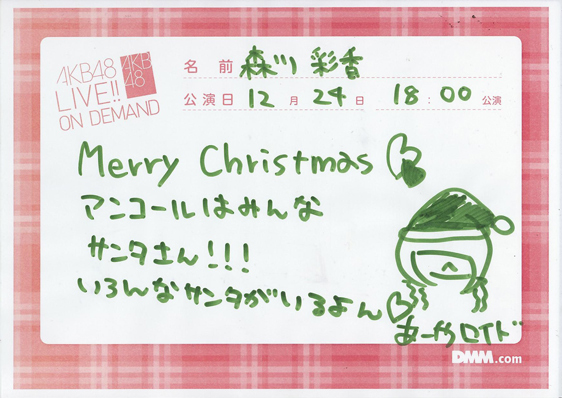 AKB48
LIVE!!
ON DEMAND
AKB
48
名前 森川彩香
公演日 12月24日 18:00公演
Merry Christmas
アンコールはみんな
サンタさん!!!
いろんなサンタがいるよん
あーやロイド
DMM.com